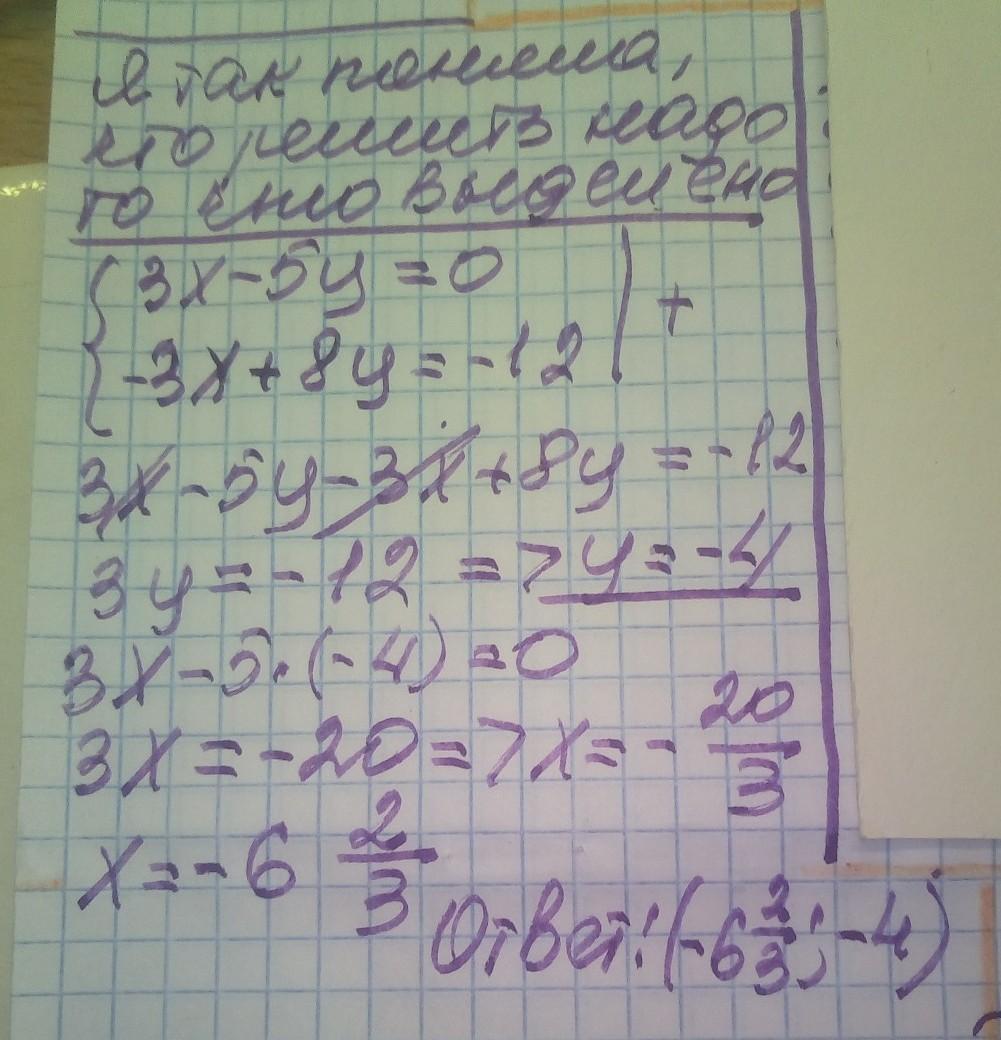 Я так поняла,
что решить надо
то что выделено
{3x-5y=0
-3x+8y=-12 | +
3x-5y-3x+8y=-12
3y=-12 => y=-4
3x-5·(-4)=0
3x=-20=>x=-20/3
x=-6 2/3
Ответ: (-6 2/3; -4)